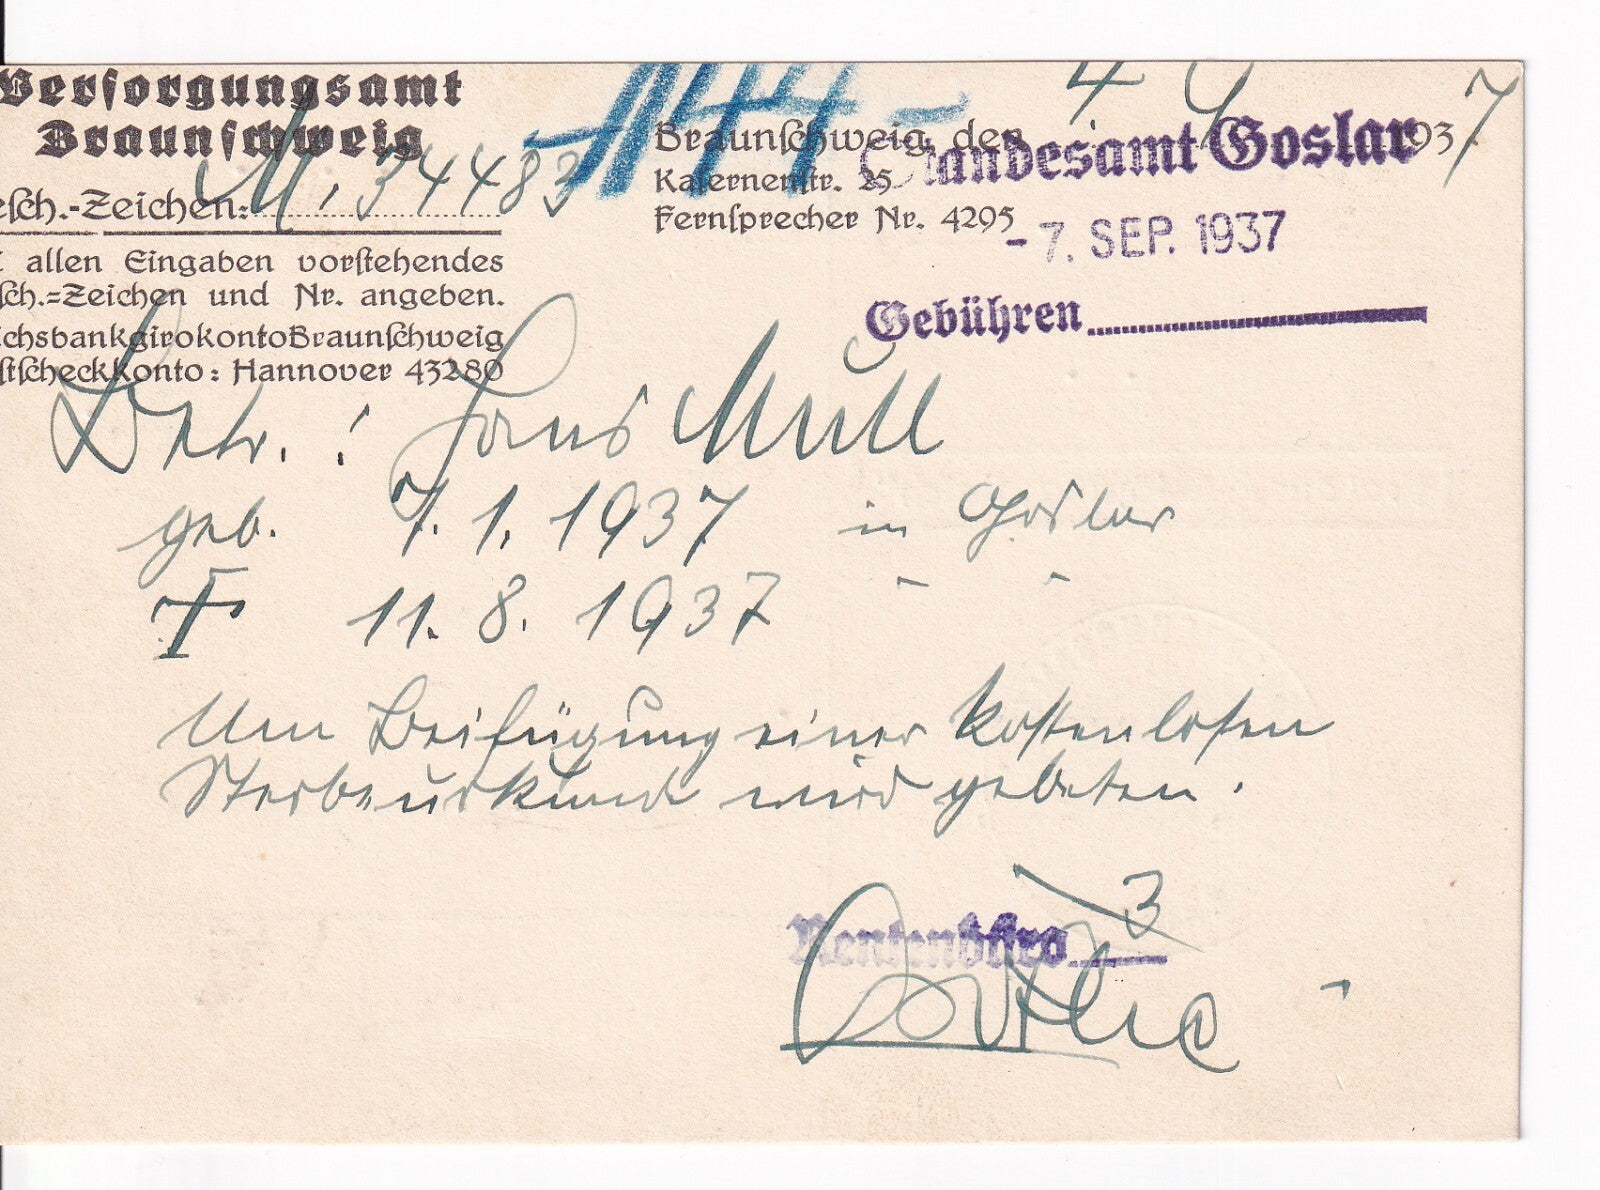 Versorgungsamt
Braunschweig
esch.-Zeichen: M. 34483
allen Eingaben vorstehendes
sch.=Zeichen und Nr. angeben.
chsbankgirokonto Braunschweig
stscheckkonto: Hannover 43280
144
Braunschweig, den 4. 9. 1937
Kasernenstr. 25
Fernsprecher Nr. 4295
Standesamt Goslar
- 7. SEP. 1937
Gebühren
Betr.: Hans Müll
geb. 7. 1. 1937 in Goslar
† 11. 8. 1937 " "
Um Beifügung einer kostenlosen
Sterbeurkunde wird gebeten.
Rentenbüro 3